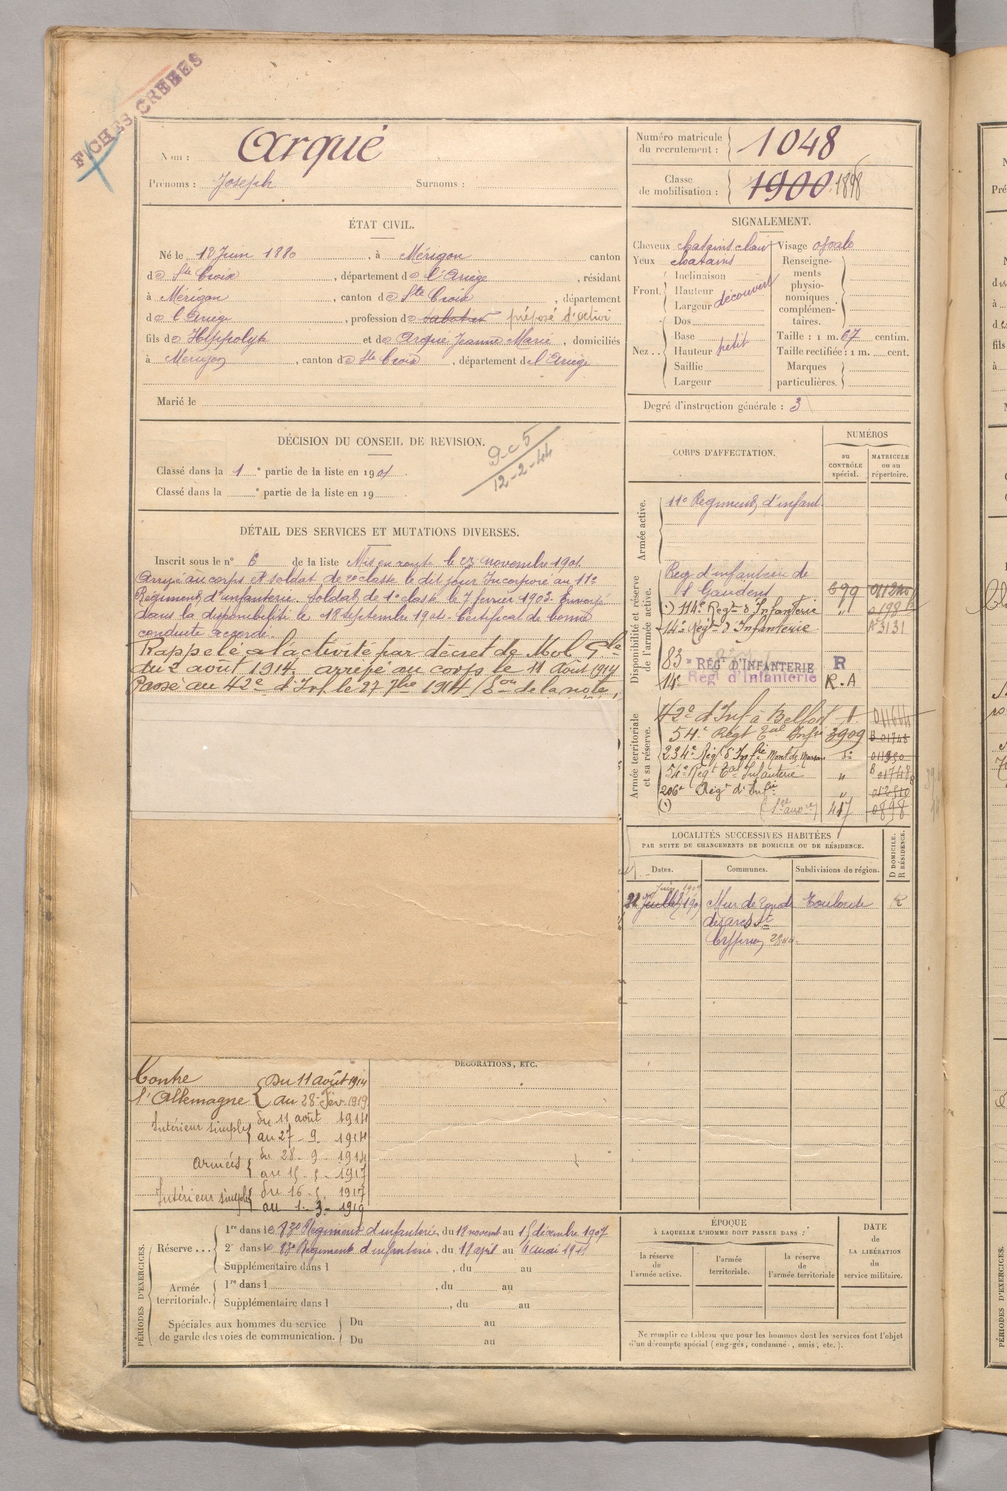 FICHES CRÉÉES
Nom : Arqué
Prénoms : Joseph Surnoms :
Numéro matricule du recrutement : 1048
Classe de mobilisation : 1900 1898
ÉTAT CIVIL.
Né le 18 Juin 1880, à Mérigon canton
de Ste Croix, département de l'Ariège, résidant
à Mérigon, canton de Ste Croix, département
de l'Ariège, profession de sabotier préposé d'octroi
fils de Hippolyte et de Arqué Jeanne Marie, domiciliés
à Mérigon, canton de Ste Croix, département de l'Ariège
Marié le
SIGNALEMENT.
Cheveux chatains clair Visage ovale
Yeux chatains
Front. Inclinaison
Hauteur
Largeur découvert
Nez. Dos
Base
Hauteur petit
Saillie
Largeur
Renseignements physionomiques complémentaires.
Taille : 1 m. 67 centim.
Taille rectifiée : 1 m. cent.
Marques particulières.
Degré d'instruction générale : 3
DÉCISION DU CONSEIL DE REVISION.
Classé dans la 1e partie de la liste en 1901
Classé dans la e partie de la liste en 19
12-2-44
DÉTAIL DES SERVICES ET MUTATIONS DIVERSES.
Inscrit sous le n° 6 de la liste Mis en route le 23 novembre 1901
Arrivé au corps et soldat de 2e classe le dit jour Incorporé au 11e
Régiment d'infanterie. Soldat de 1e classe le 7 février 1903. Envoyé
dans la disponibilité le 18 septembre 1904. Certificat de bonne
conduite accordé.
Rappelé à l'activité par décret de Mob. Gle
du 2 août 1914, arrivé au corps le 11 Août 1914
Passé au 42e d'Inf. le 27 7bre 1914
CORPS D'AFFECTATION.
NUMÉROS
au CONTRÔLE spécial.
MATRICULE ou au répertoire.
Armée active.
11e Régiment d'infant.
Disponibilité et réserve de l'armée active.
Reg. d'infanterie de
St Gaudens 579
114e Regt d'Infanterie "
14e Regt d'Infanterie 3131
83e RÉGt D'INFANTERIE R
14e Régt d'Infanterie R.A
Armée territoriale et sa réserve.
42e d'Inf à Belfort
54e Régt Tal Infie 3909
234e Rég d'Infie Mont de Marsan
54e Régt Tal Infanterie "
206e Régt d'Infie "
LOCALITÉS SUCCESSIVES HABITÉES
PAR SUITE DE CHANGEMENTS DE DOMICILE OU DE RÉSIDENCE.
Dates. Communes. Subdivisions de région. D DOMICILE. R RÉSIDENCE.
Toulouse R
DÉCORATIONS, ETC.
Contre Du 11 août 1914
l'Allemagne au 28 Fév. 1919
Intérieur simple du 11 août 1914
au 27 - 9 - 1914
Armées du 28 - 9 - 1914
au 15 - 5 - 1917
Intérieur simple du 16 - 5 - 1917
au 1 - 3 - 1919
PÉRIODES D'EXERCICES.
Réserve... 1re dans le 83e Régiment d'infanterie, du 19 novemb au 15 décembre 1907
2e dans le 83e Régiment d'infanterie, du 17 april au 4 mai 1911
Supplémentaire dans l , du au
Armée territoriale. 1re dans l , du au
Supplémentaire dans l , du au
Spéciales aux hommes du service de garde des voies de communication. Du au
Du au
ÉPOQUE
À LAQUELLE L'HOMME DOIT PASSER DANS :
la réserve de l'armée active.
l'armée territoriale.
la réserve de l'armée territoriale
DATE de LA LIBÉRATION du service militaire.
Ne remplir ce tableau que pour les hommes dont les services font l'objet
d'un décompte spécial (engagés, condamnés, omis, etc.).